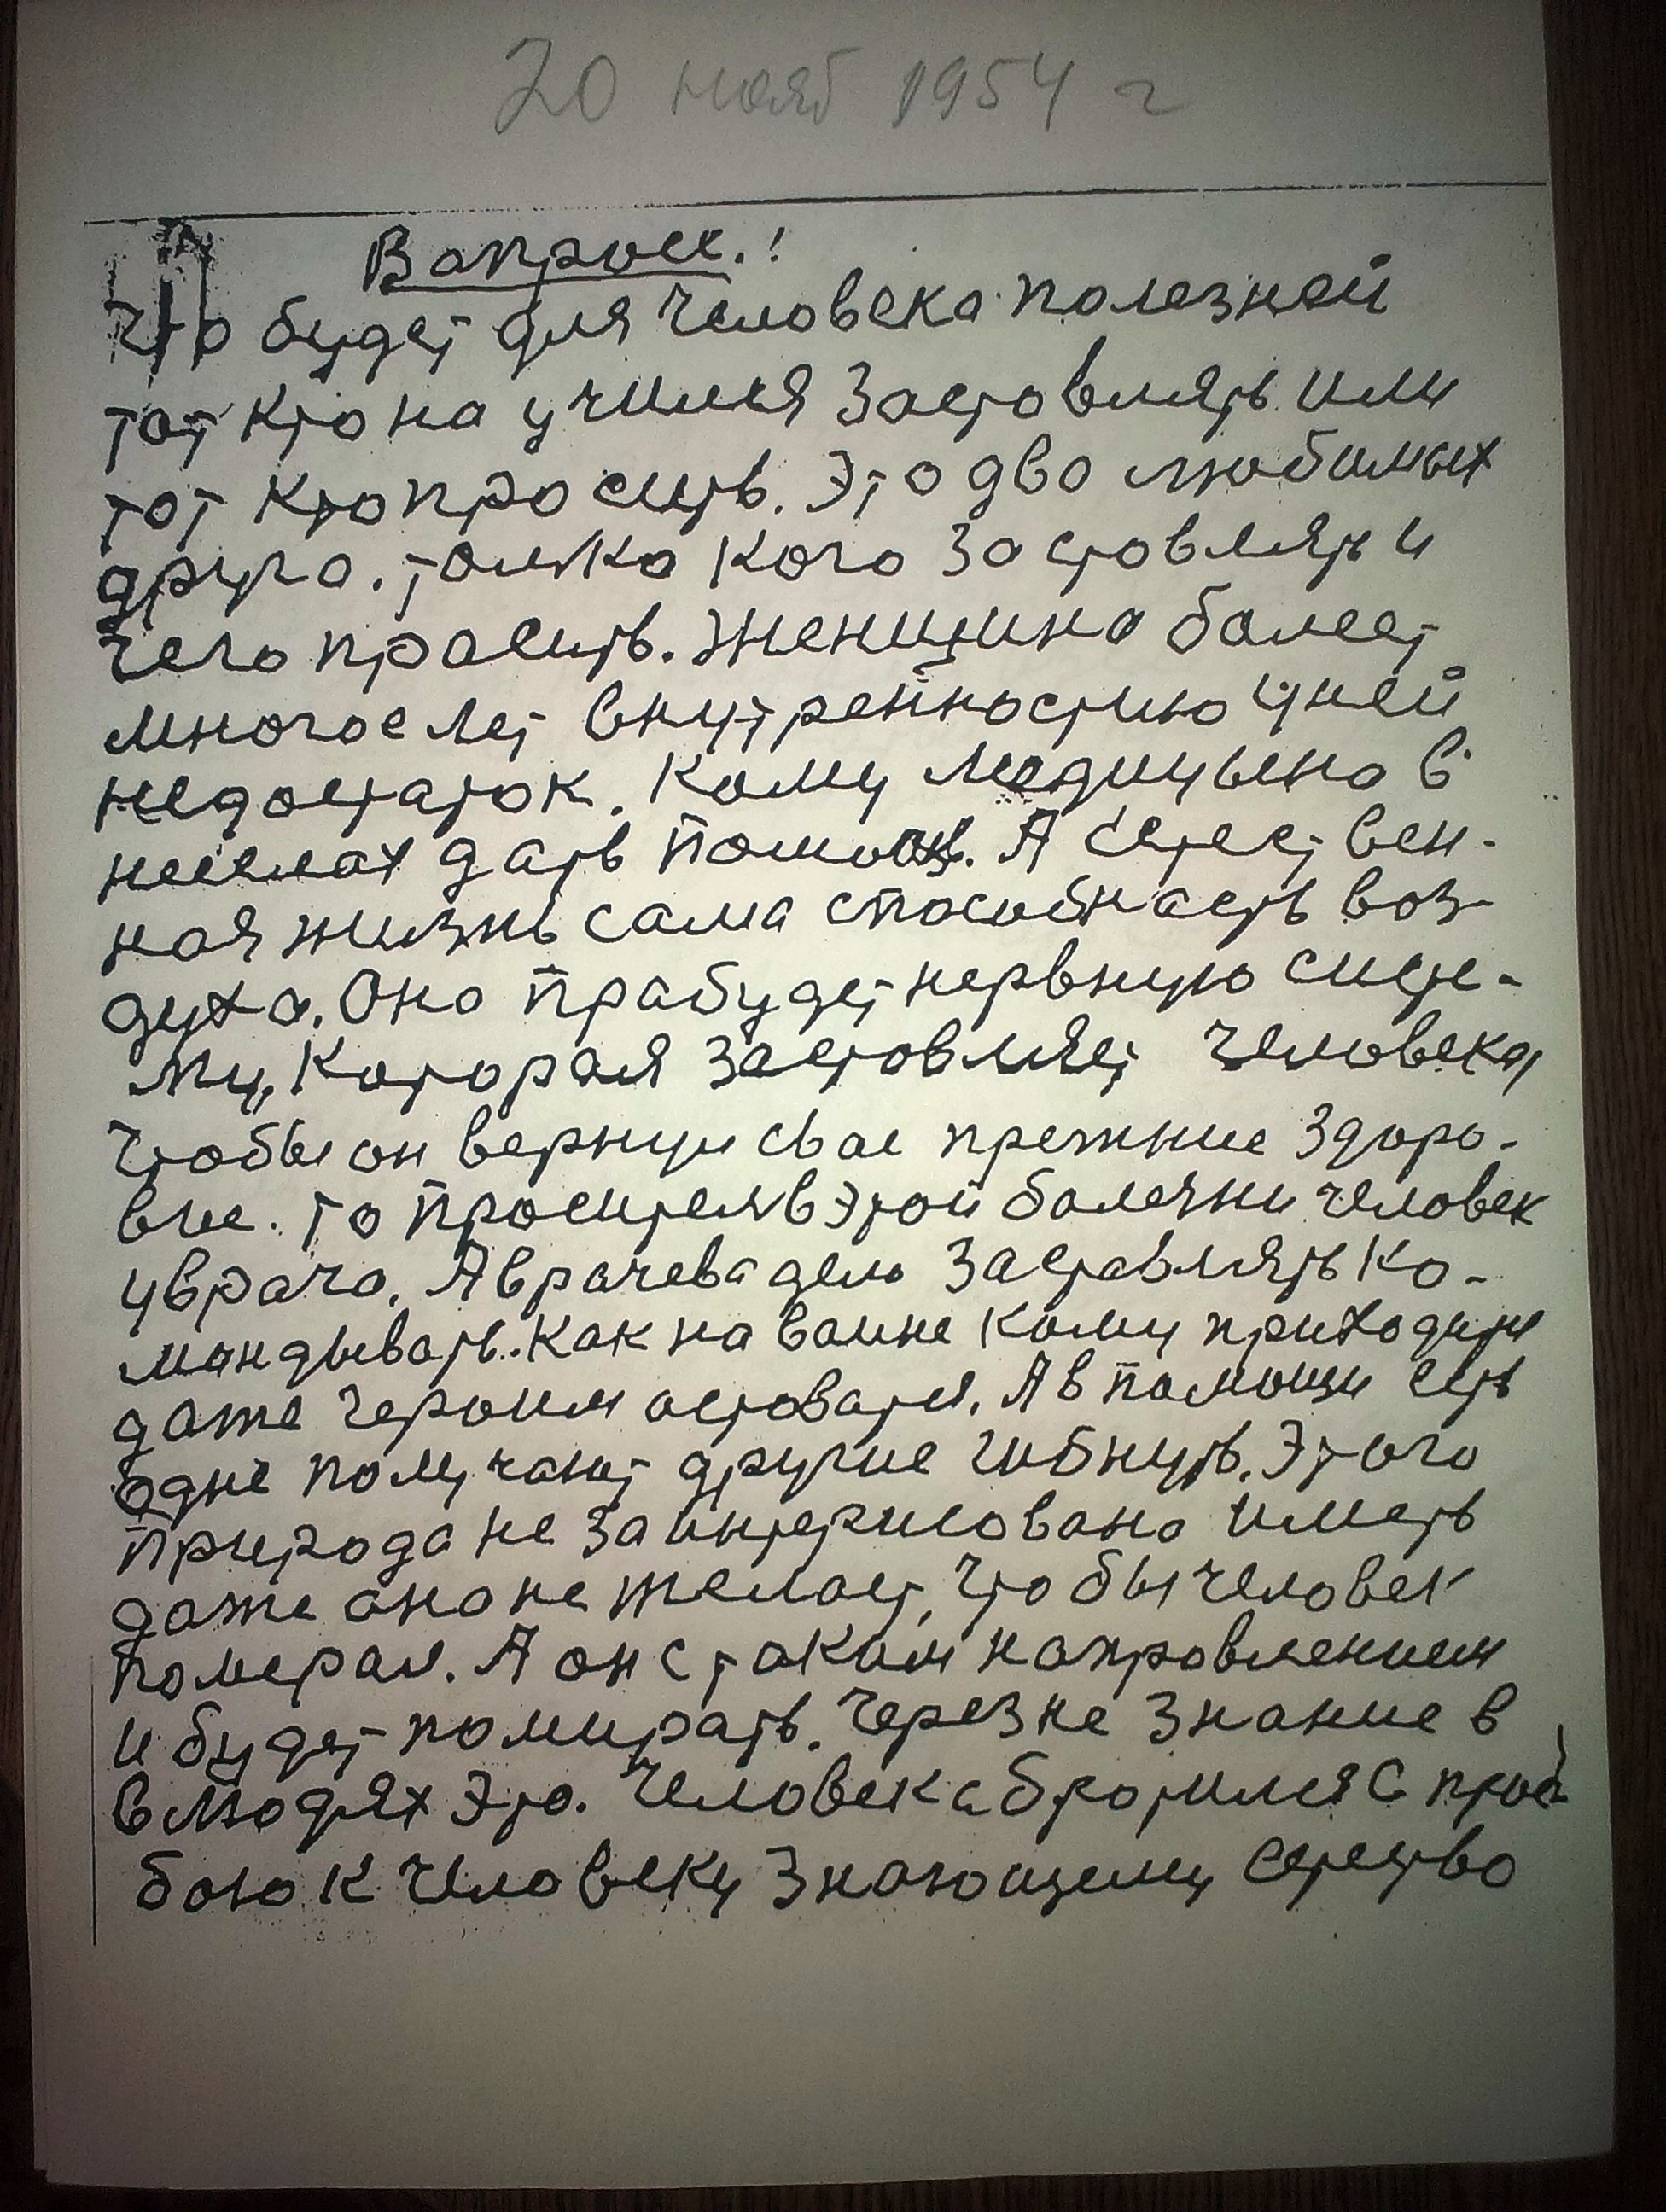 20 нояб 1954 г
Вапросс.!
Что будет для человека полезней
тот кто на учился застовлять или
тот кто просить. Это дво любимых
друго. толко кого застовлять и
чего прасить. Женщино болеет
многое лет внутренностию у ней
недостаток. Кому медицыно в
несилах дать помощь. А естествен-
ноя жизнь сама способнасть воз-
духа. Оно прабудет нервную систе-
му, Которая застовляет человека,
чтобы он вернул свае прежние здоро-
вие. То проситель в этой болезни человек
у врача. А врачева дело заставлять ко-
мандывать. Как на ваине кому приходится
даже героим астоватся. А в помощи есть
одне получают другие гибнуть. Этого
природа не заинтерисовано иметь
даже оно не желает, что бы человек
померал. А он с таким напровлением
и будет помирать. Через не знание в
в людях это. Человек абротился с прось
бою к человеку знающему естество